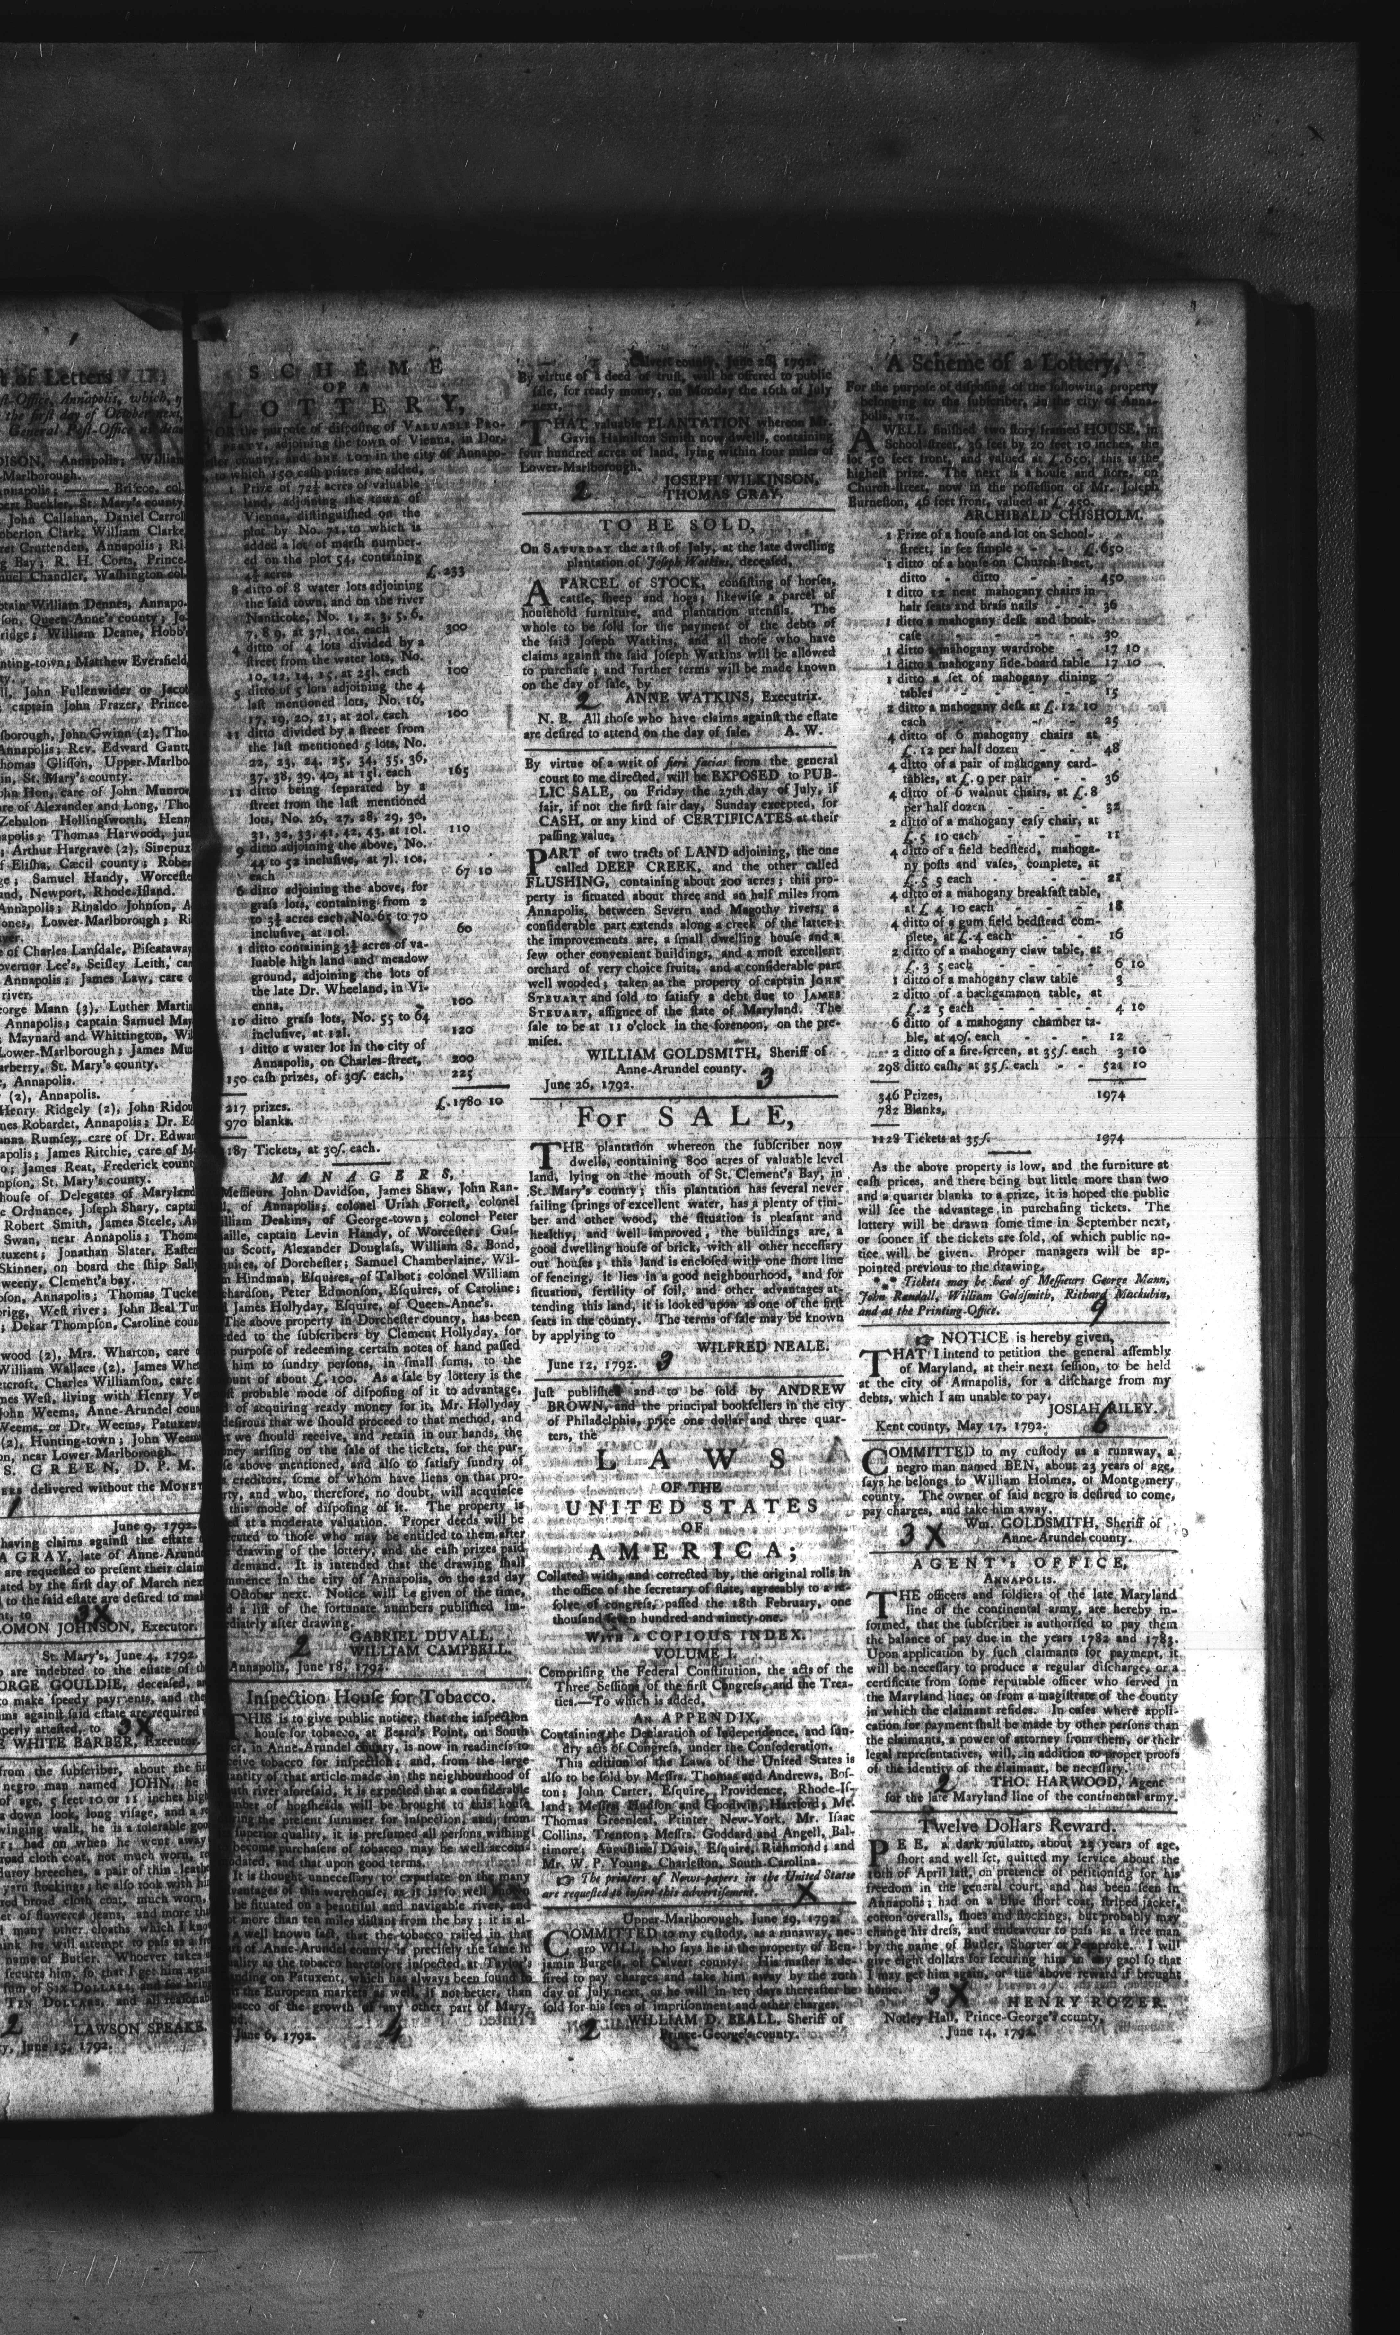 t of Letters
st-Office, Annapolis, which, if
the first day of October next,
General Post-Office as dead
DISON, Annapolis; William
Marlborough.
nnapolis; —— Briscoe, col.
bert Buckler, St. Mary's county
John Callahan, Daniel Carroll
oberton Clark, William Clarke,
ret Cruttenden, Annapolis; Ri-
g Bay; R. H. Corts, Prince-
nuel Chandler, Washington col.
ptain William Dennes, Annapo-
son, Queen-Anne's county; Jo-
ridge; William Deane, Hobb's
nting-town; Matthew Eversfield,
ty.
ll, John Fullenwider or Jacob
captain John Frazer, Prince-
lborough, John Gwinn (2), Tho.
Annapolis; Rev. Edward Gantt,
homas Glisson, Upper-Marlbo-
in, St. Mary's county.
ohn Hon, care of John Munroe,
re of Alexander and Long, Tho.
Zebulon Hollingsworth, Henry
apolis; Thomas Harwood, jun.
; Arthur Hargrave (2), Sinepux-
f Elisha, Cæcil county; Robert
ge; Samuel Handy, Worcester
and, Newport, Rhode-Island.
Annapolis; Rinaldo Johnson, A
ones, Lower-Marlborough; Ri
iver.
e of Charles Lansdale, Piscataway
overnor Lee's, Seisley Leith, car
Annapolis; James Law, care o
river.
orge Mann (3), Luther Martin
Annapolis; captain Samuel May
; Maynard and Whittington, Wil
Lower-Marlborough; James Mur
arberry, St. Mary's county.
, Annapolis.
(2), Annapolis.
Henry Ridgely (2), John Ridou
nes Robardet, Annapolis; Dr. Ed
anna Rumsey, care of Dr. Edwar
apolis; James Ritchie, care of M
o.; James Reat, Frederick county
mpson, St. Mary's county.
house of Delegates of Maryland
e Ordnance, Joseph Shary, captai
Robert Smith, James Steele, An
Swan, near Annapolis; Thoma
tuxent; Jonathan Slater, Easter
Skinner, on board the ship Sally
weeny, Clement's bay.
oson, Annapolis; Thomas Tucke
origg, West river; John Beal Tu
; Dekar Thompson, Caroline coun
wood (2), Mrs. Wharton, care o
William Wallace (2), James Whe
etcroft, Charles Williamson, care o
mes West, living with Henry Ve
John Weems, Anne-Arundel coun
Weems, or Dr. Weems, Patuxen
(2), Hunting-town; John Weem
on, near Lower-Marlborough.
S. GREEN, D. P. M.
ERS delivered without the MONEY
1
June 9, 1792.
having claims against the estate
A GRAY, late of Anne-Arund
are requested to present their claim
ated by the first day of March next
to the said estate are desired to mak
nt, to 3X
LOMON JOHNSON, Executor.
St. Mary's, June 4, 1792.
o are indebted to the estate of th
ORGE GOULDIE, deceased, a
to make speedy payments, and the
ms against said estate are required
perly attested, to 3X
E WHITE BARBER, Executor.
from the subscriber, about the fir
negro man named JOHN, he i
of age, 5 feet 10 or 11 inches high
a down look, long visage, and a r
winging walk, he is a tolerable goo
r; had on when he went away
road cloth coat, not much worn,
duroy breeches, a pair of thin leathe
yarn stockings; he also took with hi
ed broad cloth coat, much worn,
et of flowered jeans, and more tha
many other cloaths which I know
ink he will attempt to pass as a fr
name of Butler. Whoever takes
secures him, so that I get him again
sum of SIX DOLLARS,
TEN DOLLARS, and all reasonabl
2 LAWSON SPEAKE.
y, June 15, 1792.
SCHEME
OF A
LOTTERY,
FOR the purpose of disposing of VALUABLE PRO-
PERTY, adjoining the town of Vienna, in Dor-
ter county, and ONE LOT in the city of Annapo-
to which 150 cash prizes are added.
1 Prize of 72½ acres of valuable
land, adjoining the town of
Vienna, distinguished on the
plot by No. 21, to which is
added a lot of marsh number-
ed on the plot 54, containing
4½ acres £. 233
8 ditto of 8 water lots adjoining
the said town, and on the river
Nanticoke, No. 1, 2, 3, 5, 6,
7, 8, 9, at 37l. 10s. each 300
4 ditto of 4 lots divided by a
street from the water lots, No.
10, 12, 14, 15, at 25l. each 100
5 ditto of 5 lots adjoining the 4
last mentioned lots, No. 16,
17, 19, 20, 21, at 20l. each 100
11 ditto divided by a street from
the last mentioned 5 lots, No.
22, 23, 24, 25, 34, 35, 36,
37, 38, 39, 40, at 15l. each 165
11 ditto being separated by a
street from the last mentioned
lots, No. 26, 27, 28, 29, 30,
31, 32, 33, 41, 42, 43, at 10l. 110
9 ditto adjoining the above, No.
44 to 52 inclusive, at 7l. 10s.
each 67 10
6 ditto adjoining the above, for
grass lots, containing from 2
to 5¾ acres each, No. 65 to 70
inclusive, at 10l. 60
1 ditto containing 3½ acres of va-
luable high land and meadow
ground, adjoining the lots of
the late Dr. Wheeland, in Vi-
enna. 100
10 ditto grass lots, No. 55 to 64
inclusive, at 12l. 120
1 ditto a water lot in the city of
Annapolis, on Charles-street, 200
150 cash prizes, of 30s. each, 225
217 prizes. £. 1780 10
970 blanks.
187 Tickets, at 30s. each.
MANAGERS,
Messieurs John Davidson, James Shaw, John Ran-
l, of Annapolis; colonel Uriah Forrest, colonel
illiam Deakins, of George-town; colonel Peter
aille, captain Levin Handy, of Worcester; Gus-
us Scott, Alexander Douglass, William S. Bond,
quires, of Dorchester; Samuel Chamberlaine, Wil-
m Hindman, Esquires, of Talbot; colonel William
chardson, Peter Edmonson, Esquires, of Caroline;
d James Hollyday, Esquire, of Queen-Anne's.
The above property in Dorchester county, has been
eded to the subscribers by Clement Hollyday, for
purpose of redeeming certain notes of hand passed
him to sundry persons, in small sums, to the
ount of about £. 100. As a sale by lottery is the
st probable mode of disposing of it to advantage,
d of acquiring ready money for it, Mr. Hollyday
desirous that we should proceed to that method, and
t we should receive, and retain in our hands, the
ney arising on the sale of the tickets, for the pur-
se above mentioned, and also to satisfy sundry of
creditors, some of whom have liens on that pro-
rty, and who, therefore, no doubt, will acquiesce
this mode of disposing of it. The property is
ed at a moderate valuation. Proper deeds will be
ecuted to those who may be entitled to them after
drawing of the lottery, and the cash prizes paid
demand. It is intended that the drawing shall
mmence in the city of Annapolis, on the 22d day
October next. Notice will be given of the time,
d a list of the fortunate numbers published im-
ediately after drawing.
GABRIEL DUVALL,
2 WILLIAM CAMPBELL.
Annapolis, June 18, 1792.
Inspection House for Tobacco.
THIS is to give public notice, that the inspection
house for tobacco, at Beard's Point, on South
er, in Anne-Arundel county, is now in readiness to
ceive tobacco for inspection; and, from the large
antity of that article made in the neighbourhood of
uth river aforesaid, it is expected that a considerable
mber of hogsheads will be brought to this house
ring the present summer for inspection; and, from
superior quality, it is presumed all persons wishing
become purchasers of tobacco may be well accom-
odated, and that upon good terms.
It is thought unnecessary to expatiate on the many
vantages of this warehouse, as it is so well known
be situated on a beautiful and navigable river, and
t more than ten miles distant from the bay; it is al-
a well known fact, that the tobacco raised in that
rt of Anne-Arundel county is precisely the same in
ality as the tobacco heretofore inspected, at Taylor's
nding on Patuxent, which has always been found to
the European markets as well, if not better, than
bacco of the growth of any other part of Mary-
nd.
June 6, 1792. 4
Calvert county, June 26, 1792.
By virtue of a deed of trust, will be offered to public
sale, for ready money, on Monday the 16th of July
next,
THAT valuable PLANTATION whereon Mr.
Gavin Hamilton Smith now dwells, containing
four hundred acres of land, lying within four miles of
Lower-Marlborough.
JOSEPH WILKINSON,
2 THOMAS GRAY.
TO BE SOLD,
On SATURDAY the 21st of July, at the late dwelling
plantation of Joseph Watkins, deceased,
A PARCEL of STOCK, consisting of horses,
cattle, sheep and hogs; likewise a parcel of
household furniture, and plantation utensils. The
whole to be sold for the payment of the debts of
the said Joseph Watkins, and all those who have
claims against the said Joseph Watkins will be allowed
to purchase; and further terms will be made known
on the day of sale, by
2 ANNE WATKINS, Executrix.
N. B. All those who have claims against the estate
are desired to attend on the day of sale. A. W.
By virtue of a writ of fieri facias from the general
court to me directed, will be EXPOSED to PUB-
LIC SALE, on Friday the 27th day of July, if
fair, if not the first fair day, Sunday excepted, for
CASH, or any kind of CERTIFICATES at their
passing value,
PART of two tracts of LAND adjoining, the one
called DEEP CREEK, and the other called
FLUSHING, containing about 200 acres; this pro-
perty is situated about three and an half miles from
Annapolis, between Severn and Magothy rivers, a
considerable part extends along a creek of the latter;
the improvements are, a small dwelling house and a
few other convenient buildings, and a most excellent
orchard of very choice fruits, and a considerable part
well wooded; taken as the property of captain JOHN
STEUART and sold to satisfy a debt due to JAMES
STEUART, assignee of the state of Maryland. The
sale to be at 11 o'clock in the forenoon, on the pre-
mises.
WILLIAM GOLDSMITH, Sheriff of
Anne-Arundel county.
June 26, 1792. 3
For SALE,
THE plantation whereon the subscriber now
dwells, containing 800 acres of valuable level
land, lying on the mouth of St. Clement's Bay, in
St. Mary's county; this plantation has several never
failing springs of excellent water, has a plenty of tim-
ber and other wood, the situation is pleasant and
healthy, and well improved, the buildings are, a
good dwelling house of brick, with all other necessary
out houses; this land is enclosed with one short line
of fencing, it lies in a good neighbourhood, and for
situation, fertility of soil, and other advantages at-
tending this land, it is looked upon as one of the first
seats in the county. The terms of sale may be known
by applying to
WILFRED NEALE.
June 12, 1792. 3
Just published and to be sold by ANDREW
BROWN, and the principal booksellers in the city
of Philadelphia, price one dollar and three quar-
ters, the
LAWS
OF THE
UNITED STATES
OF
AMERICA;
Collated with, and corrected by, the original rolls in
the office of the secretary of state, agreeably to a re-
solve of congress, passed the 18th February, one
thousand seven hundred and ninety-one.
WITH A COPIOUS INDEX.
VOLUME I.
Comprising the Federal Constitution, the acts of the
Three Sessions of the first Congress, and the Trea-
ties.—To which is added,
An APPENDIX,
Containing the Declaration of Independence, and sun-
dry acts of Congress, under the Confederation.
This edition of the Laws of the United States is
also to be sold by Messrs. Thomas and Andrews, Bos-
ton; John Carter, Esquire, Providence, Rhode-Is-
land; Messrs Hudson and Goodwin, Hartford; Mr.
Thomas Greenleaf, Printer New-York, Mr. Isaac
Collins, Trenton; Messrs. Goddard and Angell, Bal-
timore; Augustine Davis, Esquire, Richmond; and
Mr. W. P. Young, Charleston, South Carolina.
☞ The printers of News-papers in the United States
are requested to insert this advertisement. X
Upper-Marlborough, June 29, 1792.
COMMITTED to my custody, as a runaway, ne-
gro WILL, who says he is the property of Ben-
jamin Burgess, of Calvert county. His master is de-
sired to pay charges and take him away by the 20th
day of July next, or he will in ten days thereafter be
sold for his fees of imprisonment and other charges.
WILLIAM D. BEALL, Sheriff of
2 Prince-George's county.
A Scheme of a Lottery,
For the purpose of disposing of the following property
belonging to the subscriber, in the city of Anna-
polis, viz.
A WELL finished two story framed HOUSE, in
School-street, 36 feet by 20 feet 10 inches, the
lot 50 feet front, and valued at £. 650, this is the
highest prize. The next is a house and store, on
Church-street, now in the possession of Mr. Joseph
Burneston, 46 feet front, valued at £. 450.
ARCHIBALD CHISHOLM.
1 Prize of a house and lot on School-
street, in fee simple - - £. 650
1 ditto of a house on Church-street,
ditto - ditto - - 450
1 ditto 12 neat mahogany chairs in
hair seats and brass nails - - 36
1 ditto a mahogany desk and book-
case - - - - 30
1 ditto a mahogany wardrobe - - 17 10
1 ditto a mahogany side-board table 17 10
1 ditto a set of mahogany dining
tables - - - - 15
2 ditto a mahogany desk at £. 12 10
each - - - - 25
4 ditto of 6 mahogany chairs at
£. 12 per half dozen - - 48
4 ditto of a pair of mahogany card-
tables, at £. 9 per pair - - 36
4 ditto of 6 walnut chairs, at £. 8
per half dozen - - 32
2 ditto of a mahogany easy chair, at
£. 5 10 each - - - 11
4 ditto of a field bedsterd, mahoga-
ny posts and vases, complete, at
£. 5 5 each - - - 21
4 ditto of a mahogany breakfast table,
at £ 4 10 each - - - 18
4 ditto of a gum field bedstead com-
plete, at £. 4 each - - 16
2 ditto of a mahogany claw table, at
£. 3 5 each - - - 6 10
1 ditto of a mahogany claw table 3
2 ditto of a backgammon table, at
£. 2 5 each - - - - 4 10
6 ditto of a mahogany chamber ta-
ble, at 40s. each - - - 12
2 ditto of a fire-screen, at 35s. each 3 10
298 ditto cash, at 35s. each - - 521 10
346 Prizes, 1974
782 Blanks,
1128 Tickets at 35s. 1974
As the above property is low, and the furniture at
cash prices, and there being but little more than two
and a quarter blanks to a prize, it is hoped the public
will see the advantage in purchasing tickets. The
lottery will be drawn some time in September next,
or sooner if the tickets are sold, of which public no-
tice will be given. Proper managers will be ap-
pointed previous to the drawing.
*** Tickets may be had of Messieurs George Mann,
John Randall, William Goldsmith, Richard Mackubin,
and at the Printing-Office. 9
☞ NOTICE is hereby given,
THAT I intend to petition the general assembly
of Maryland, at their next session, to be held
at the city of Annapolis, for a discharge from my
debts, which I am unable to pay.
JOSIAH RILEY.
Kent county, May 17, 1792. 6
COMMITTED to my custody as a runaway, a
negro man named BEN, about 23 years of age,
says he belongs to William Holmes, of Montgomery
county. The owner of said negro is desired to come,
pay charges, and take him away.
Wm. GOLDSMITH, Sheriff of
3X Anne-Arundel county.
AGENT's OFFICE,
ANNAPOLIS.
THE officers and soldiers of the late Maryland
line of the continental army, are hereby in-
formed, that the subscriber is authorised to pay them
the balance of pay due in the years 1782 and 1783.
Upon application by such claimants for payment, it
will be necessary to produce a regular discharge, or a
certificate from some reputable officer who served in
the Maryland line, or from a magistrate of the county
in which the claimant resides. In cases where appli-
cation for payment shall be made by other persons than
the claimants, a power of attorney from them, or their
legal representatives, will, in addition to proper proofs
of the identity of the claimant, be necessary.
2 THO. HARWOOD, Agent
for the late Maryland line of the continental army.
Twelve Dollars Reward.
PEE, a dark mulatto, about 25 years of age,
short and well set, quitted my service about the
10th of April last, on pretence of petitioning for his
freedom in the general court, and has been seen in
Annapolis; had on a blue short coat, striped jacket,
cotton overalls, shoes and stockings, but probably may
change his dress, and endeavour to pass as a free man
by the name of Butler, Shorter or Pembroke. I will
give eight dollars for securing him in any gaol so that
I may get him again, or the above reward if brought
home.
3X HENRY ROZER.
Notley Hall, Prince-George's county,
June 14, 1792.